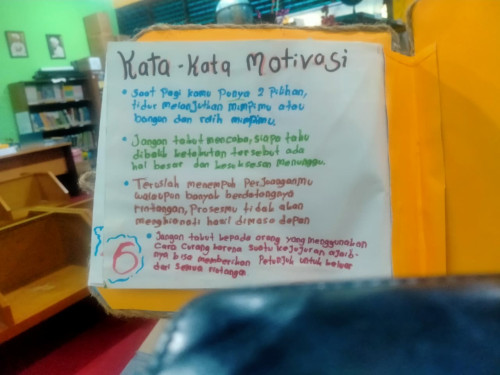 Kata-Kata Motivasi
• Saat Pagi kamu Punya 2 Pilihan,
tidur melanjutkan mimpimu atau
bangun dan raih mimpimu.
• Jangan takut mencoba, siapa tahu
dibalik ketakutan tersebut ada
hal besar dan kesuksesan menunggu.
• Teruslah menempuh Perjuanganmu
walaupun banyak berdatangnya
rintangan, Prosesmu tidak akan
mengkhianati hasil dimasa depan
• Jangan takut kepada orang yang menggunakan
Cara Curang karena suatu kejujuran ajaib-
nya bisa memberikan Petunjuk untuk keluar
dari semua rintangan.
6